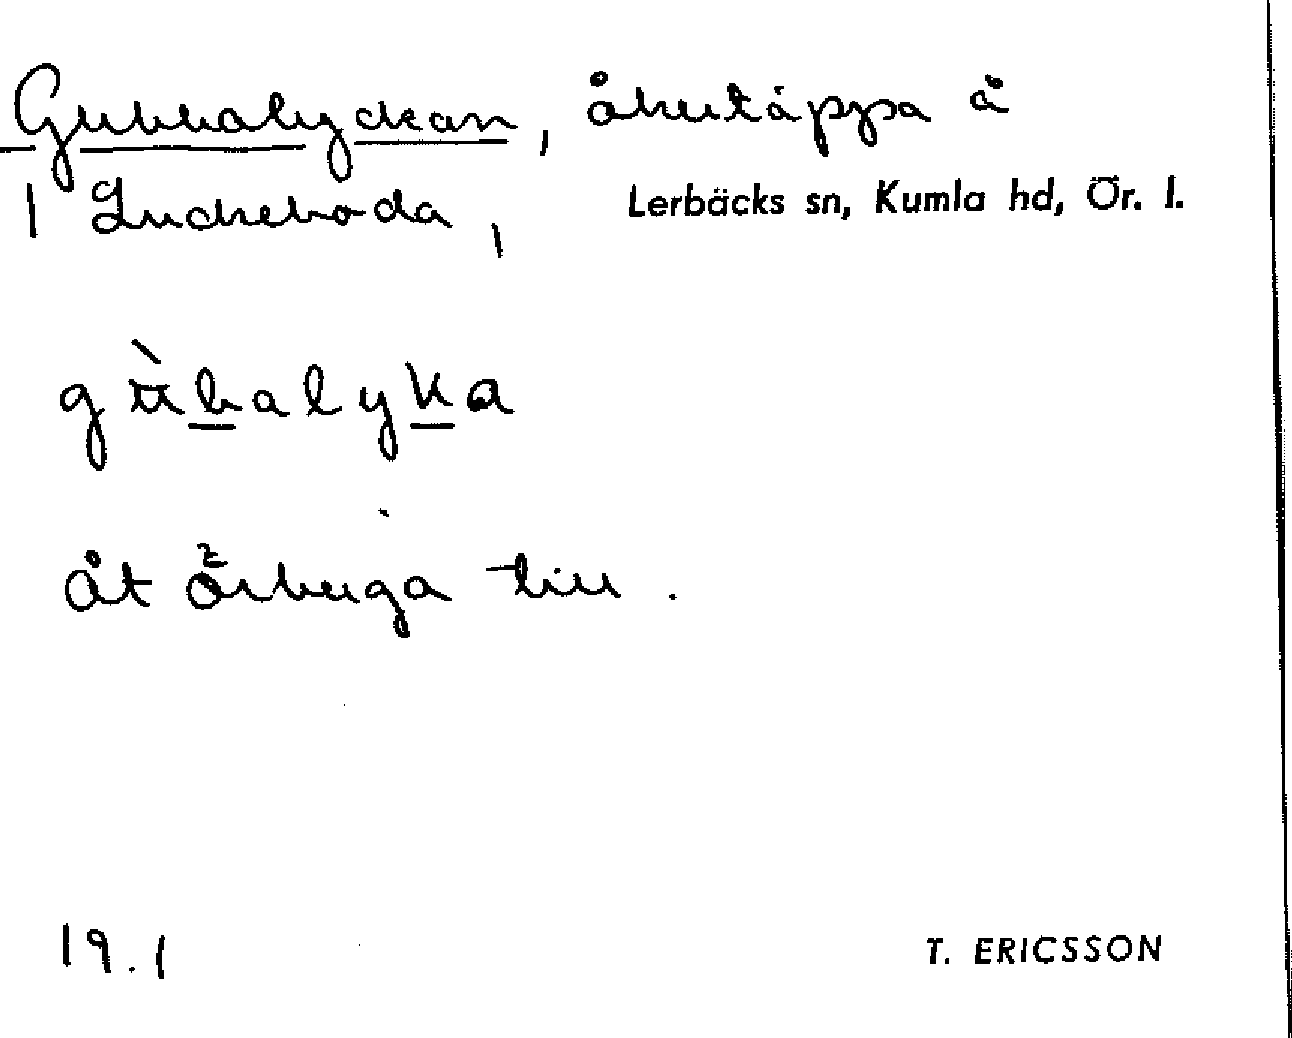 Gubbalyckan, åkertäppa å
1 Luckeboda, Lerbäcks sn, Kumla hd, Ör. l.
gùbalyka
åt Örberga till.
19.1 T. ERICSSON